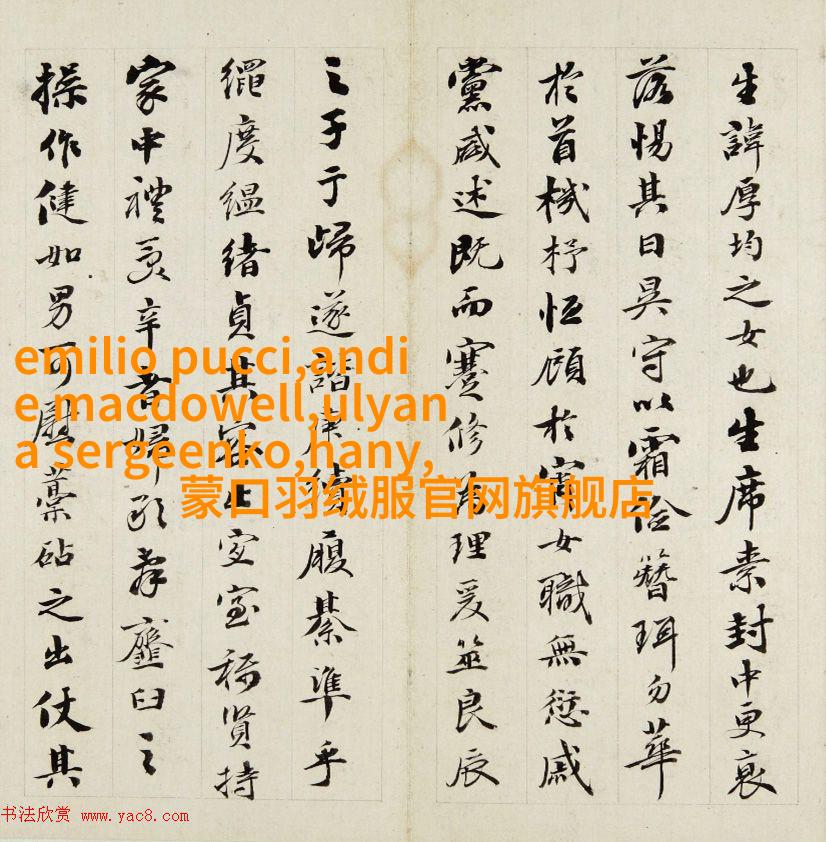 生諱厚均之女也生席素封中更衰
落惕其日昃守以霜儉簪珥勿華
於首機杼恒顧於宵女職無愆戚
黨咸述既而蹇修為理爰筮良辰
之子于歸遂諧履綦準乎
繩度縕緒貞其容止宜室稱賢持
家中禮辛齏臼之
操作健如男可慰藁砧之出仗其
emilio pucci,andi
e macdowell,ulyan
a sergeenko,hany,
蒙口羽绒服官网旗舰店
书法欣赏 www.yac8.com